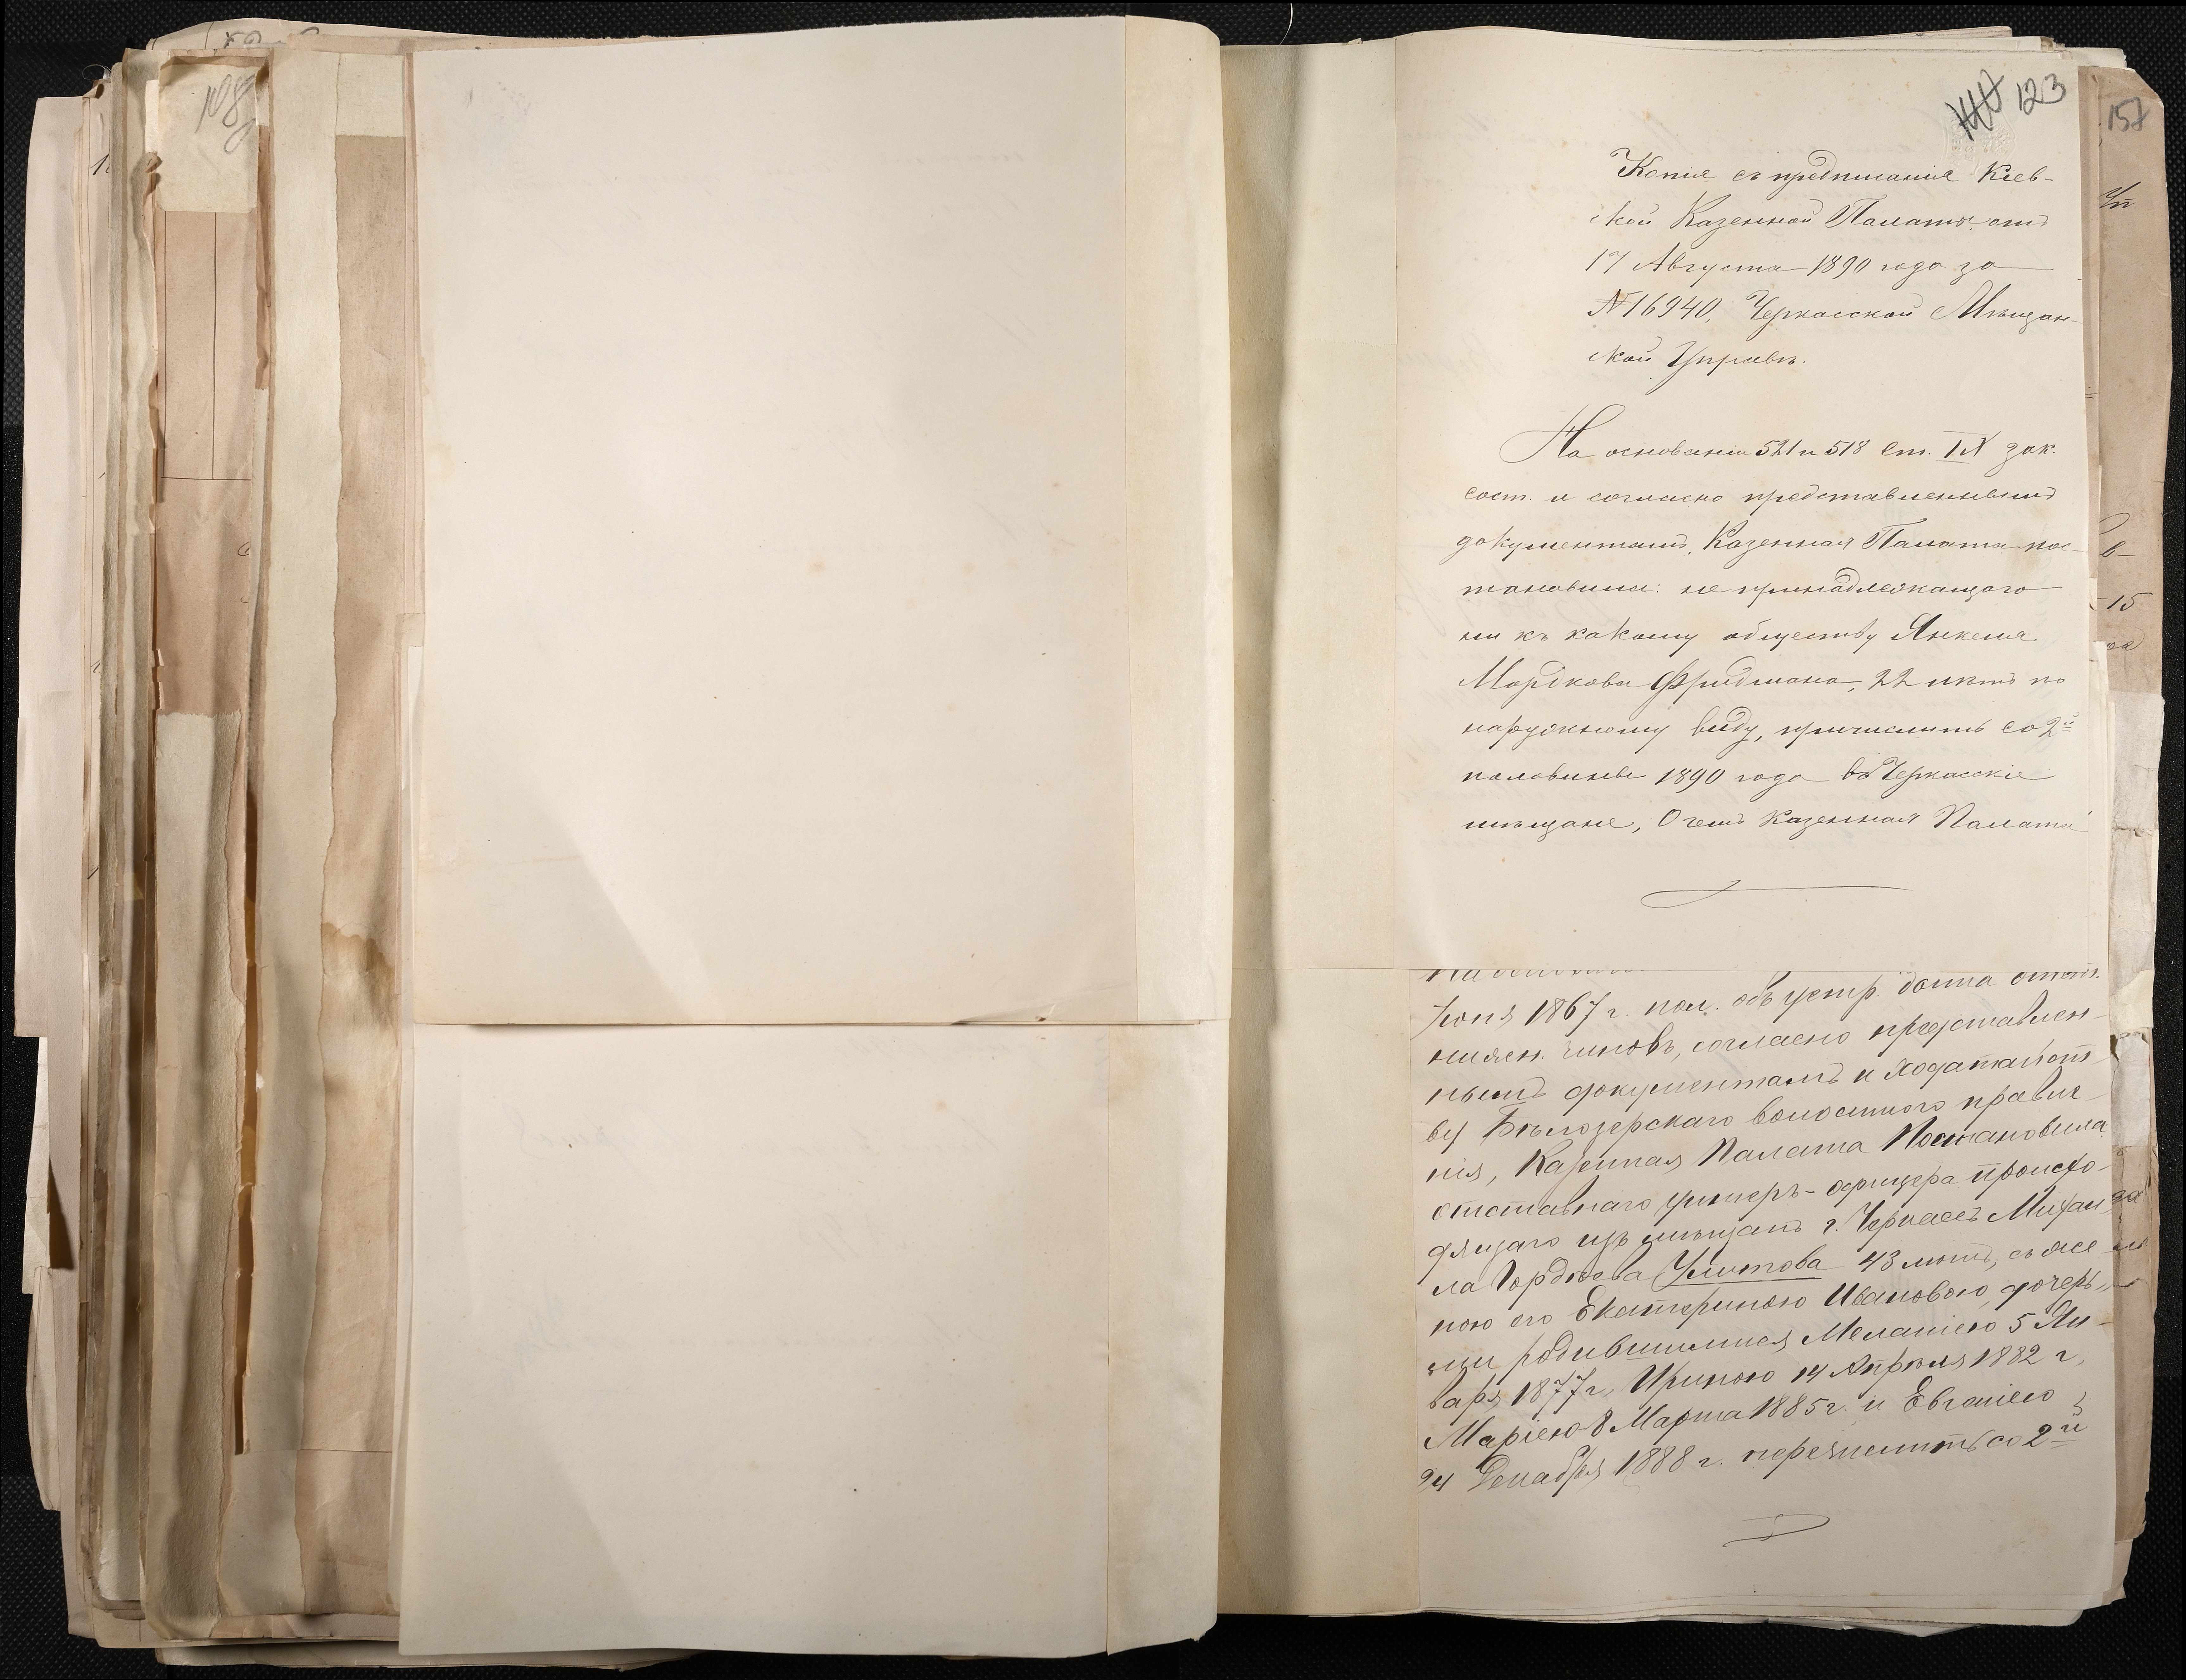 108
123
157
Копія съ предписанія Кіев-
ской Казенной Палаты отъ
17 Августа 1890 года за
№ 16940, Черкасской Мѣщан-
ской Управѣ.
На основаніи 521 и 518 ст. IX зак.
сост. и согласно представленнымъ
документамъ, Казенная Палата пос-
тановила: не принадлежащаго
ни къ какому обществу Янкеля
Мордкова Фридмана, 22 лѣтъ по
наружному виду, причислить со 2й
половины 1890 года въ Черкасскіе
мѣщане, О чемъ Казенная Палата
Іюня 1867 г. пол. объ устр. быта отст.
нижн. чиновъ, согласно представлен-
нымъ документамъ и ходатайст-
ву Бѣлозерскаго волостного правле-
нія, Казенная Палата Постановила
отставнаго унтеръ-офицера происхо-
дящаго изъ мѣщанъ г. Черкасъ Михаи-
ла Гордѣева Улитова 43 лѣтъ, съ же-
ною его Екатериною Ивановою, дочерь-
ми родившимися Меланіею 5 Ян-
варя 1877 г., Ириною 14 Апрѣля 1882 г,
Маріею 8 Марта 1885 г. и Евгеніею
24 Декабря 1888 г. перечислить со 2й